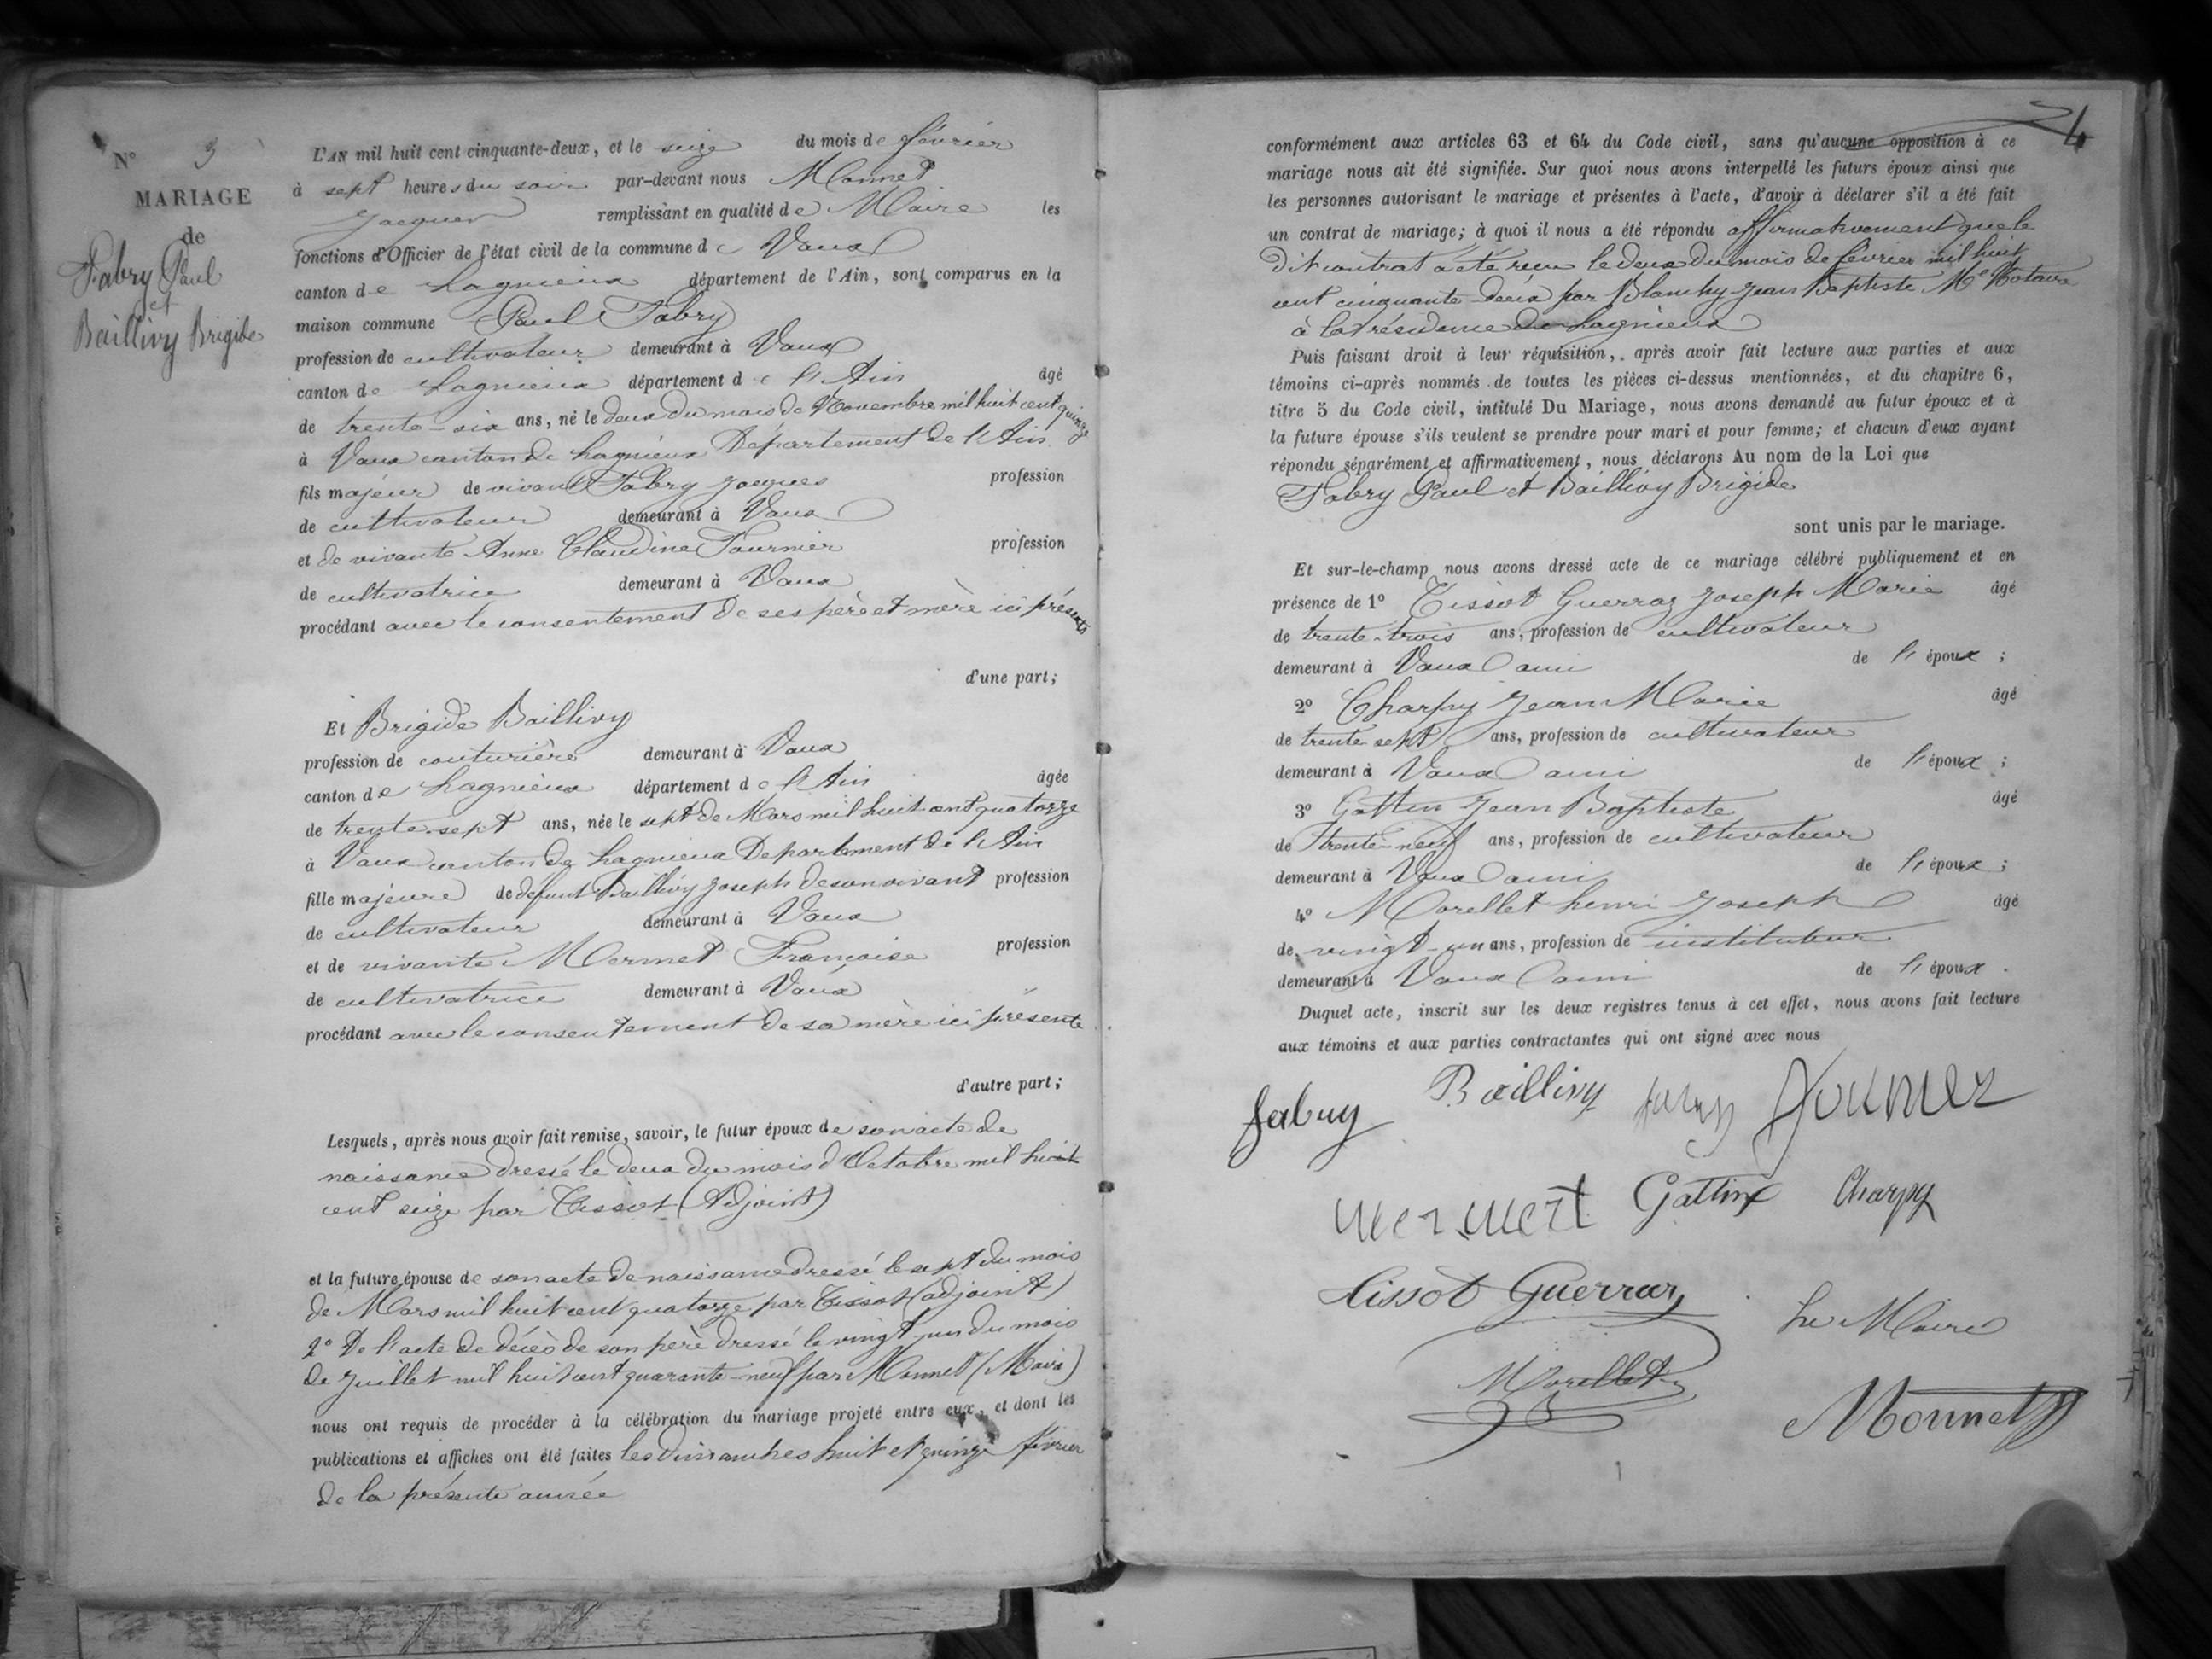 N° 3
MARIAGE
de
Fabry Paul
et
Baillivy Brigide
L'AN mil huit cent cinquante-deux, et le seize du mois de février
à sept heures du soir par-devant nous Monnet
Jacques remplissant en qualité de Maire les
fonctions d'Officier de l'état civil de la commune de Vaux
canton de Lagnieux département de l'Ain, sont comparus en la
maison commune Paul Fabry
profession de cultivateur demeurant à Vaux
canton de Lagnieux département de l'Ain âgé
de trente-six ans, né le deux du mois de Novembre mil huit cent quinze
à Vaux canton de Lagnieux Département de l'Ain
fils majeur de vivant Fabry Jacques profession
de cultivateur demeurant à Vaux
et de vivante Anne Claudine Fournier profession
de cultivatrice demeurant à Vaux
procédant avec le consentement de ses père et mère ici présents
d'une part;
Et Brigide Baillivy
profession de couturière demeurant à Vaux
canton de Lagnieux département de l'Ain âgée
de trente-sept ans, née le sept de Mars mil huit cent quatorze
à Vaux canton de Lagnieux Département de l'Ain
fille majeure de défunt Baillivy Joseph de son vivant profession
de cultivateur demeurant à Vaux
et de vivante Mermet Françoise profession
de cultivatrice demeurant à Vaux
procédant avec le consentement de sa mère ici présente
d'autre part;
Lesquels, après nous avoir fait remise, savoir, le futur époux de son acte de
naissance dressé le deux du mois d'Octobre mil huit
cent seize par Tissot (Adjoint)
et la future épouse de son acte de naissance dressé le sept du mois
de Mars mil huit cent quatorze par Tissot (adjoint)
2° De l'acte de décès de son père dressé le vingt-un du mois
de Juillet mil huit cent quarante-neuf par Monnet (Maire)
nous ont requis de procéder à la célébration du mariage projeté entre eux, et dont les
publications et affiches ont été faites les dimanches huit et quinze février
de la présente année
4
conformément aux articles 63 et 64 du Code civil, sans qu'aucune opposition à ce
mariage nous ait été signifiée. Sur quoi nous avons interpellé les futurs époux ainsi que
les personnes autorisant le mariage et présentes à l'acte, d'avoir à déclarer s'il a été fait
un contrat de mariage; à quoi il nous a été répondu affirmativement que le
dit contrat a été reçu le deux du mois de février mil huit
cent cinquante-deux par Blanchy Jean Baptiste Me Notaire
à la résidence de Lagnieux
Puis faisant droit à leur réquisition, après avoir fait lecture aux parties et aux
témoins ci-après nommés de toutes les pièces ci-dessus mentionnées, et du chapitre 6,
titre 5 du Code civil, intitulé Du Mariage, nous avons demandé au futur époux et à
la future épouse s'ils veulent se prendre pour mari et pour femme; et chacun d'eux ayant
répondu séparément et affirmativement, nous déclarons Au nom de la Loi que
Fabry Paul et Baillivy Brigide
sont unis par le mariage.
Et sur-le-champ nous avons dressé acte de ce mariage célébré publiquement et en
présence de 1° Tissot Guerraz Joseph Marie âgé
de trente-trois ans, profession de cultivateur
demeurant à Vaux ami de l'époux ;
2° Charpy Jean Marie âgé
de trente sept ans, profession de cultivateur
demeurant à Vaux ami de l'époux ;
3° Gattin Jean Baptiste âgé
de trente-neuf ans, profession de cultivateur
demeurant à Vaux ami de l'époux ;
4° Morellet henri Joseph âgé
de vingt-un ans, profession de instituteur
demeurant à Vaux ami de l'époux .
Duquel acte, inscrit sur les deux registres tenus à cet effet, nous avons fait lecture
aux témoins et aux parties contractantes qui ont signé avec nous
fabry Baillivy fabry fournier
mermert Gattin Charpy
tissot Guerraz Le Maire
Morellet Monnet